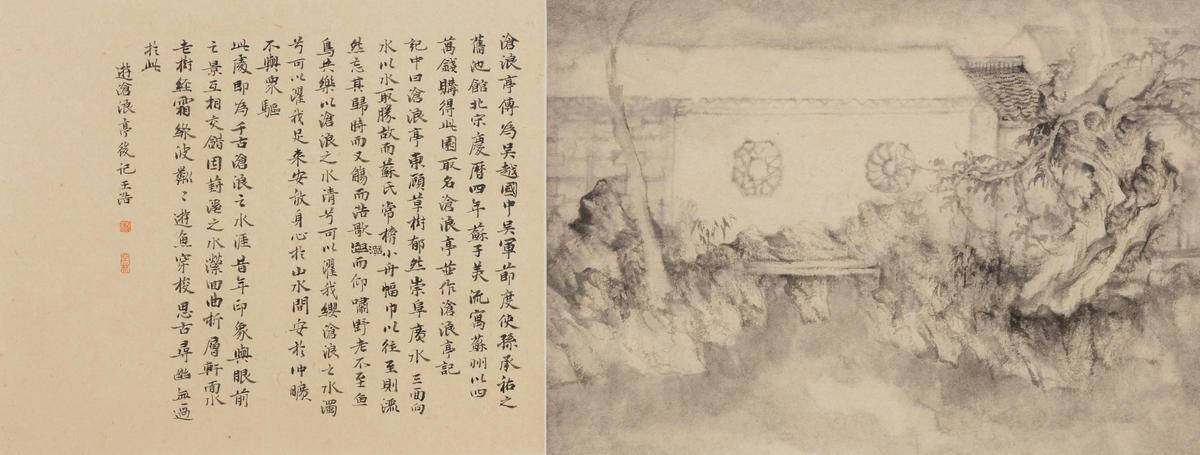 滄浪亭傳為吳越國中吳軍節度使孫承祐之
舊池館北宋慶曆四年蘇子美流寓蘇州以四
萬錢購得此園取名滄浪亭並作滄浪亭記
記中曰滄浪亭東顧草樹郁然崇阜廣水三面向
水以水取勝故而蘇氏常榜小舟幅巾以往至則流
然忘其歸時而又觴而浩歌踞而仰嘯野老不至魚
鳥共樂以滄浪之水清兮可以濯我纓滄浪之水濁
兮可以濯我足來安放身心於山水間安於沖曠
不與眾驅
此處即為千古滄浪之水涯昔年印象與眼前
之景互相交錯因葑溪之水縈回曲折層軒面水
老樹經霜綠波粼〻遊魚穿梭思古尋幽無過
於此
遊滄浪亭後記王浩